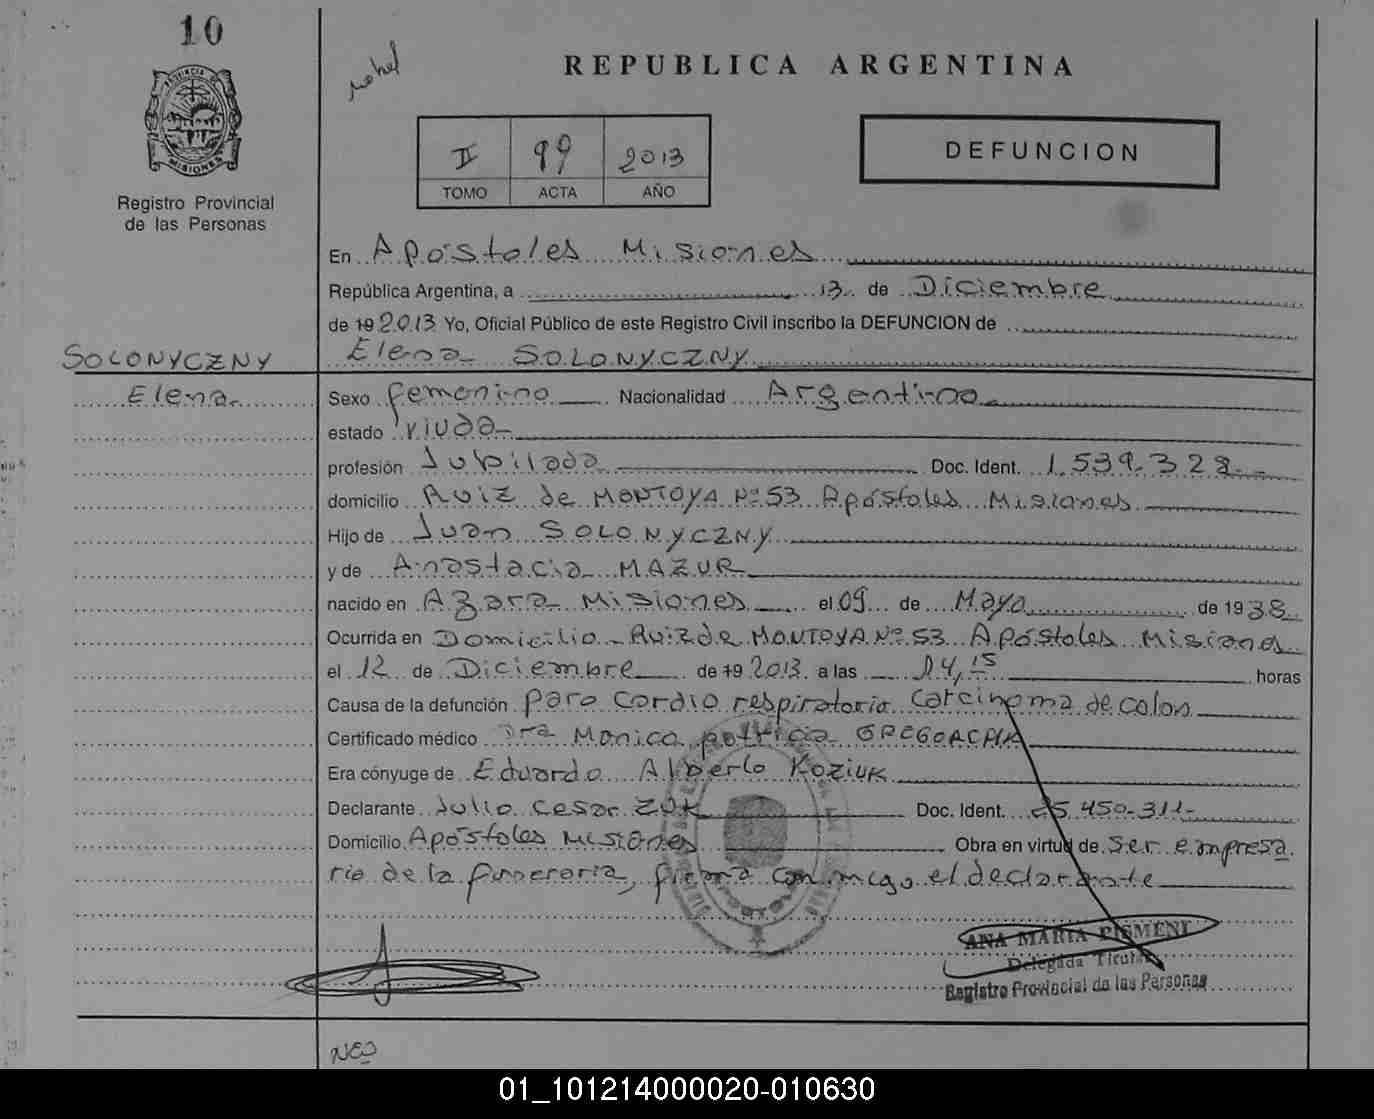 10
REPUBLICA ARGENTINA
PROVINCIA DE
MISIONES
Registro Provincial
de las Personas
II 99 2013
TOMO ACTA AÑO
DEFUNCION
En Apóstoles Misiones
República Argentina, a 13 de Diciembre
de 19 2013 Yo, Oficial Público de este Registro Civil inscribo la DEFUNCION de
SOLONYCZNY
Elena SOLONYCZNY
Elena
Sexo femenino Nacionalidad Argentina
estado Viuda
profesión Jubilada Doc. Ident. 1.539.328
domicilio Ruiz de MONTOYA Nº 53 Apóstoles Misiones
Hijo de Juan SOLONYCZNY
y de Anastacia MAZUR
nacido en Azara Misiones el 09 de Mayo de 1938
Ocurrida en Domicilio Ruiz de MONTOYA Nº 53 Apóstoles Misiones
el 12 de Diciembre de 19 2013 a las 14,15 horas
Causa de la defunción paro cardio respiratorio carcinoma de colon
Certificado médico Dra Monica patricia
Era cónyuge de Eduardo Alberto KOZIUK
Declarante Julio Cesar ZUK Doc. Ident. 25.450.311-
Domicilio Apóstoles Misiones Obra en virtud de ser empresa
rio de la funeraria, firma conmigo el declarante
ANA MARIA PISMENI
Delegada Titular
Registro Provincial de las Personas
01_101214000020-010630